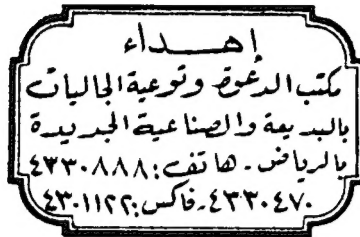 إهـــداء
مكتب الدعوة وتوعية الجاليات
بالبديعة والصناعية الجديدة
بالرياض - هاتف: ٤٣٣٠٨٨٨
٤٣٣٠٤٧٠ - فاكس: ٤٣٠١١٢٢